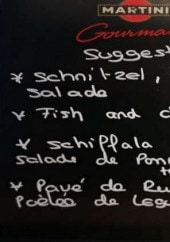 MARTINI
Gourma
Suggest
* Schnitzel,
Salade
* Fish and c
* schiffala
salade de Pom
* Pavé de Ru
Poêlée de Legu